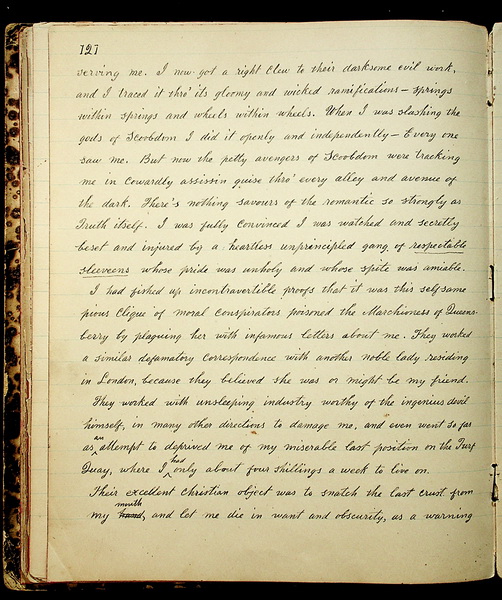 121
serving me. I now got a right Clew to their darksome evil work,
and I traced it thro' its gloomy and wicked ramifications — springs
within springs and wheels within wheels. When I was slashing the
gods of Scobdom I did it openly and independently — Every one
saw me. But now the petty avengers of Scobdom were tracking
me in Cowardly assissin guise thro' every alley and avenue of
the dark. There's nothing savours of the romantic so strongly as
Truth itself. I was fully Convinced I was watched and secretly
beset and injured by a heartless unprincipled gang of respectable
sleeveens whose pride was unholy and whose spite was amiable.
I had fished up incontrovertible proofs that it was this selfsame
pious Clique of moral Conspirators poisoned the Marchioness of Queens-
berry by plaguing her with infamous letters about me. They worked
a similar defamatory Correspondence with another noble lady residing
in London, because they believed she was or might be my friend.
They worked with unsleeping industry worthy of the ingenius devil
himself, in many other directions to damage me, and even went so far
as an attempt to deprived me of my miserable last position on the Turf
Quay, where I had only about four shillings a week to live on.
Their excellent Christian object was to snatch the last crust from
my hand, mouth and let me die in want and obscurity, as a warning